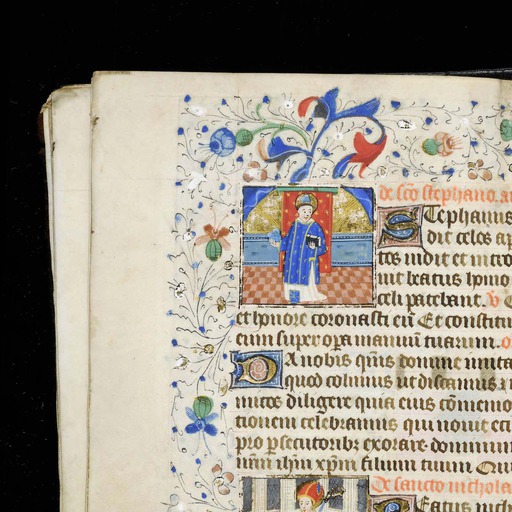 de sco stephano. an
Stephanus
dit celos ap
tos vidit et intro
uit beatus homo
celi patebant. v
et honore coronasti eu Et constitu
eum super opa manuum tuarum. o
Da nobis quis domine imita
quod colimus ut discamus
micos diligere quia eius comemo
tionem celebramus qui nouit eti
pro psecutoribz exorare dominum
nrm ihm xpm filium tuum Qui
De sancto nichola
Beatus nich